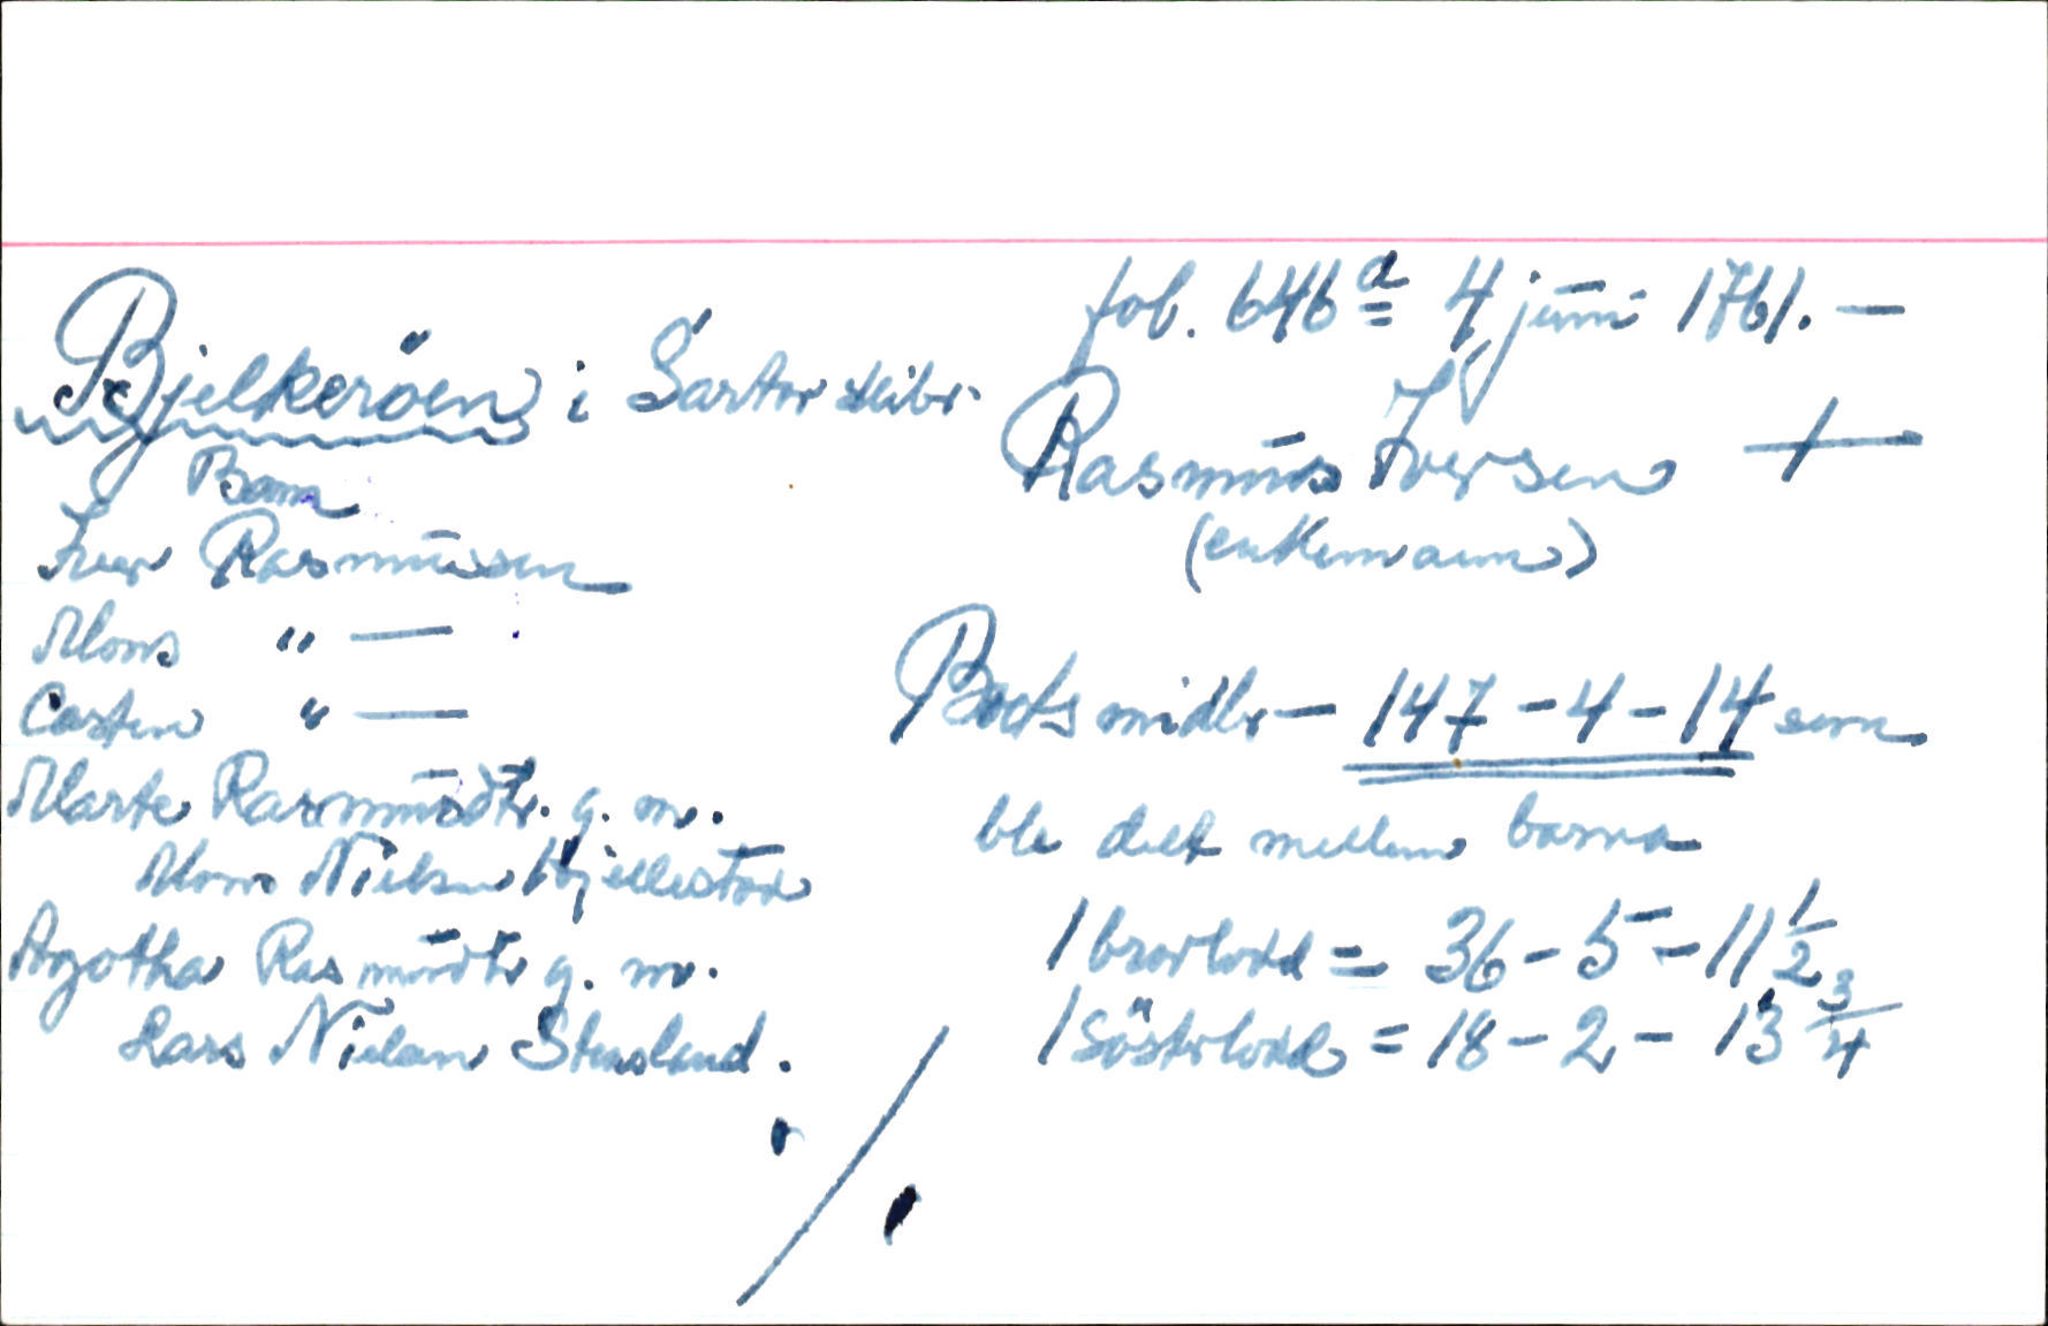 fol. 646a 4 juni 1761. —
Bjelkeröen i Sartor skibr.
Rasmus Iversen +
(enkemann)
Barn
Iver Rasmussen
Mons " —
Casten " —
Marte Rasmusdtr. g. m.
Mons Nielsen Kjellestad
Agotha Rasmusdtr g. m.
Lars Nielsen Stensland.
Boets midler — 147 - 4 - 14 som
ble delt mellem barna
1 brorlodd = 36 - 5 - 11 1/2
1 Söstrlodd = 18 - 2 - 13 3/4